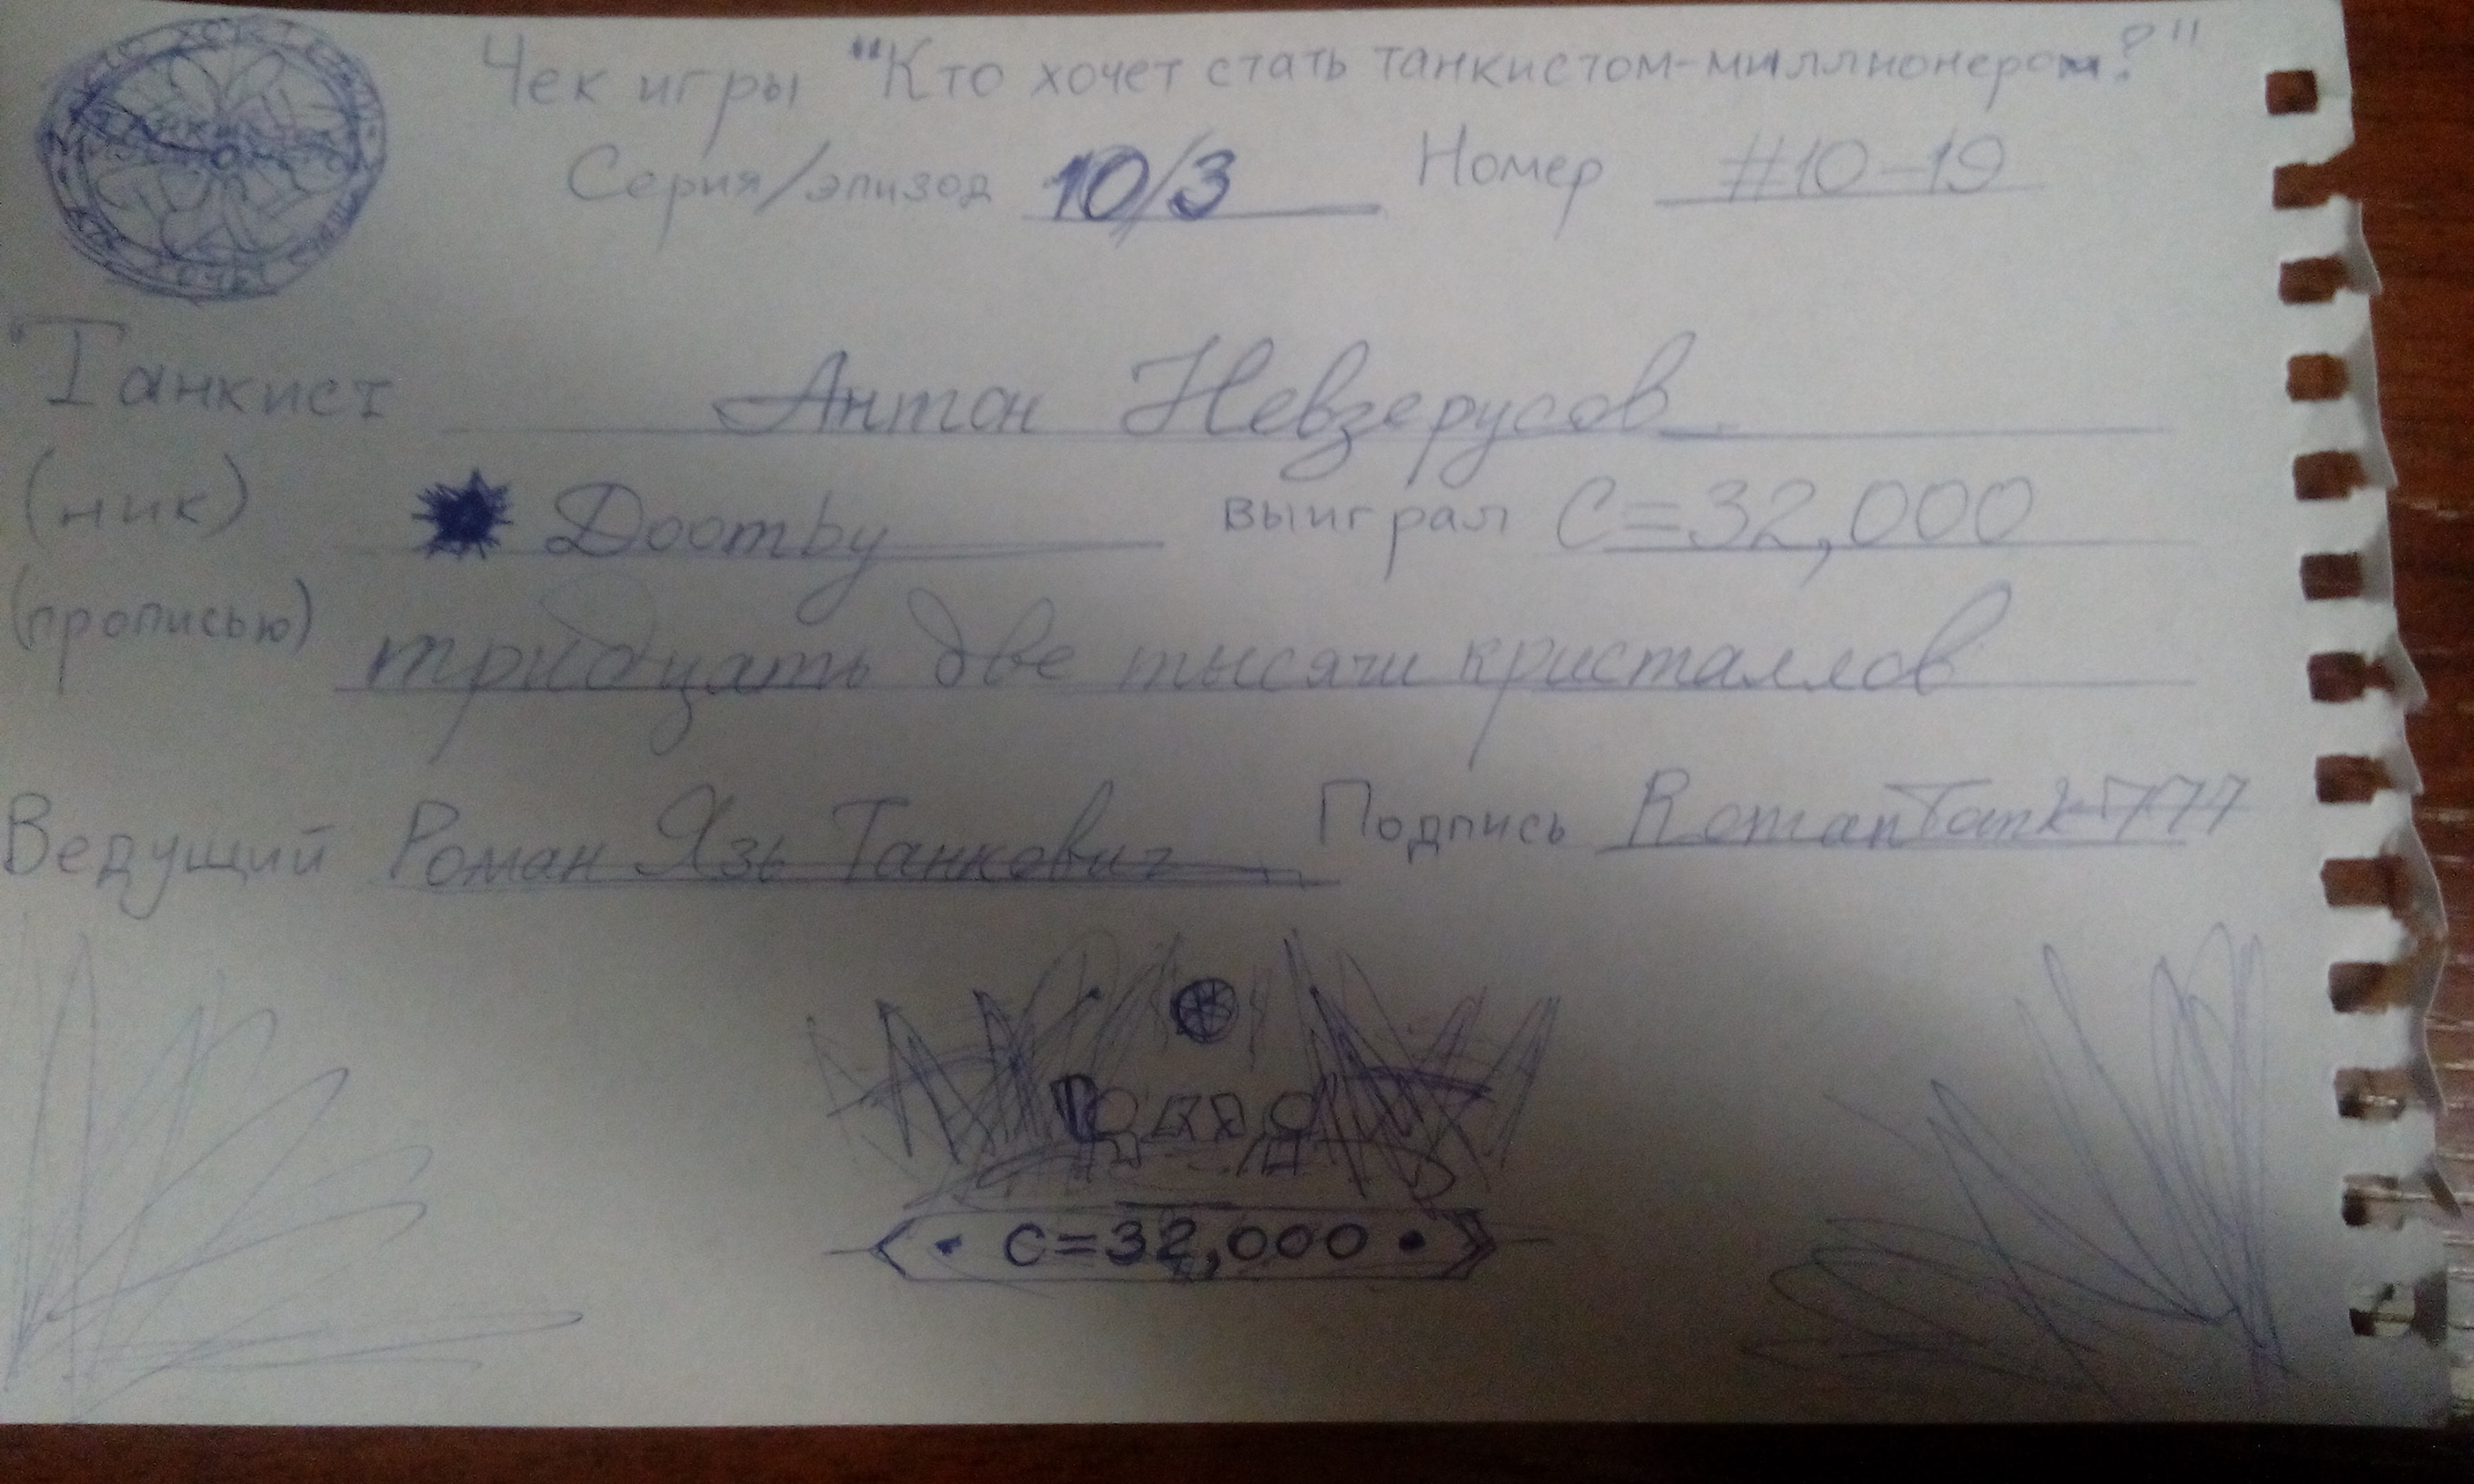 Чек игры "Кто хочет стать танкистом-миллионером?"
Серия/эпизод 10/3 Номер #10-19
Танкист Антон Невзерусов
(ник) Doomby выиграл C=32,000
(прописью) тридцать две тысячи кристаллов
Ведущий Роман Язь Танкович Подпись RomanTank777
C=32,000